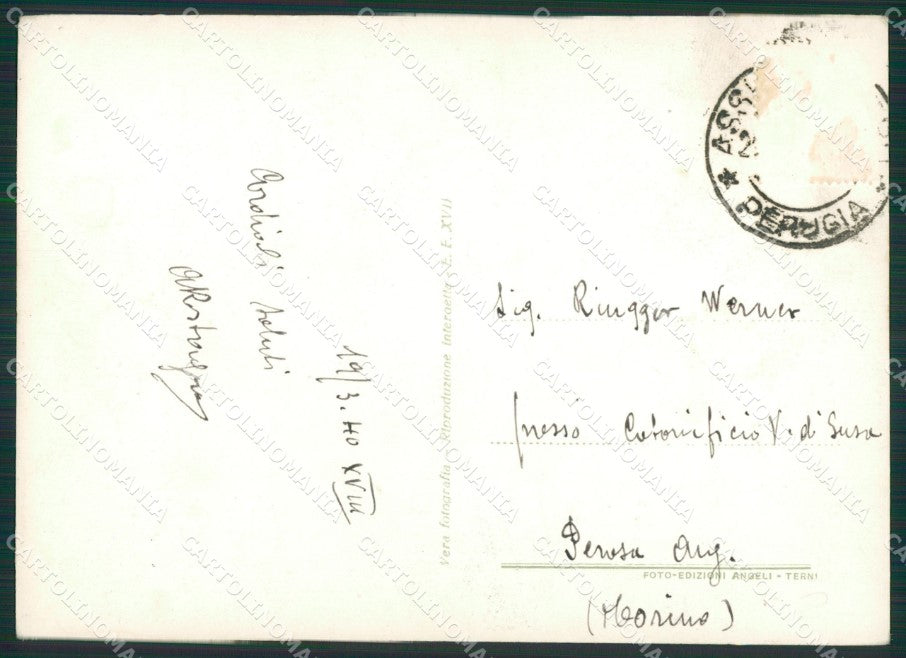 Cordiali saluti
19/3.40 XVIII
Vera fotografia - Riproduzione Interdetta - E. F. XVII
★ ASSISI
PERUGIA
Sig. Ringger Werner
presso Cotonificio V. di Susa
Perosa Arg.
FOTO-EDIZIONI ANGELI - TERNI
(Torino)
CARTOLINOMANIA